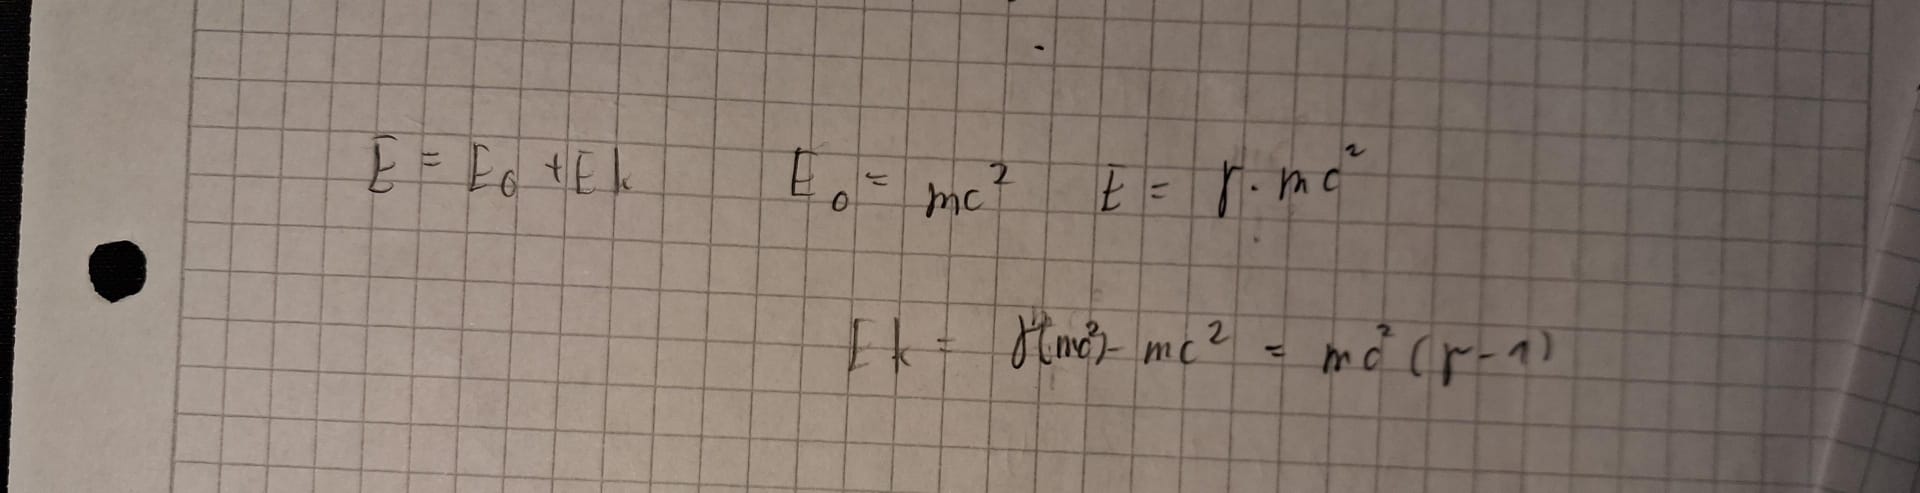 E = E₀ + Ek E₀ = mc² E = γ · mc²
Ek = γ(mc²) - mc² = mc² (γ - 1)